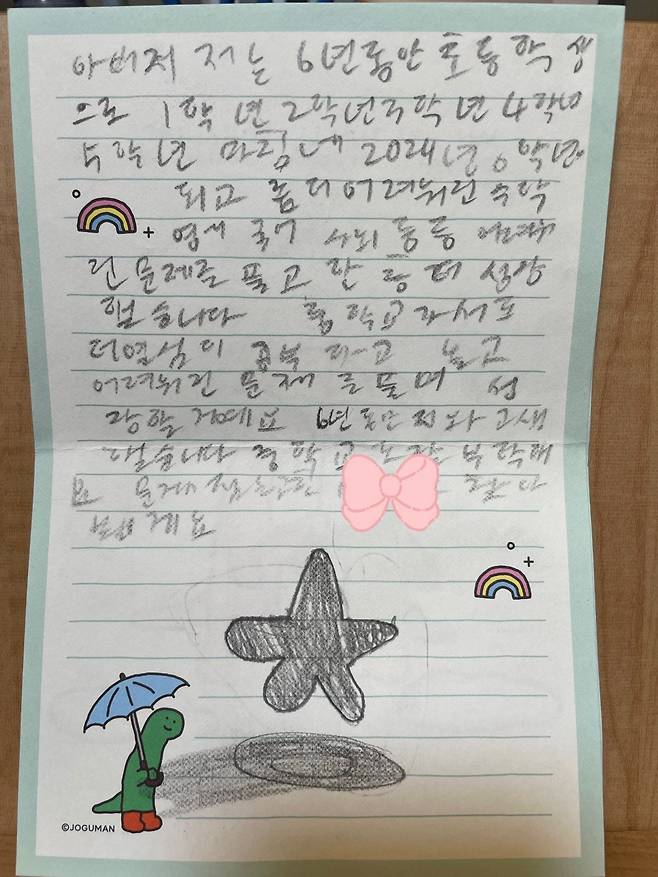 아버지 저는 6년동안 초등학생
으로 1학년2학년3학년4학년
5학년 마침내 2024년6학년
되고 좀더어려워진 수학
영어 국어 사회 통통 어려워
진문제로 풀고 한층더 성장
했습니다 중학교가서도
더열심히 공부하고 놀고
어려워진 문제를풀며 성
장할거예요 6년동안저와고생
했습니다 중학교도잘부탁해
요
뵐게요
©JOGUMAN